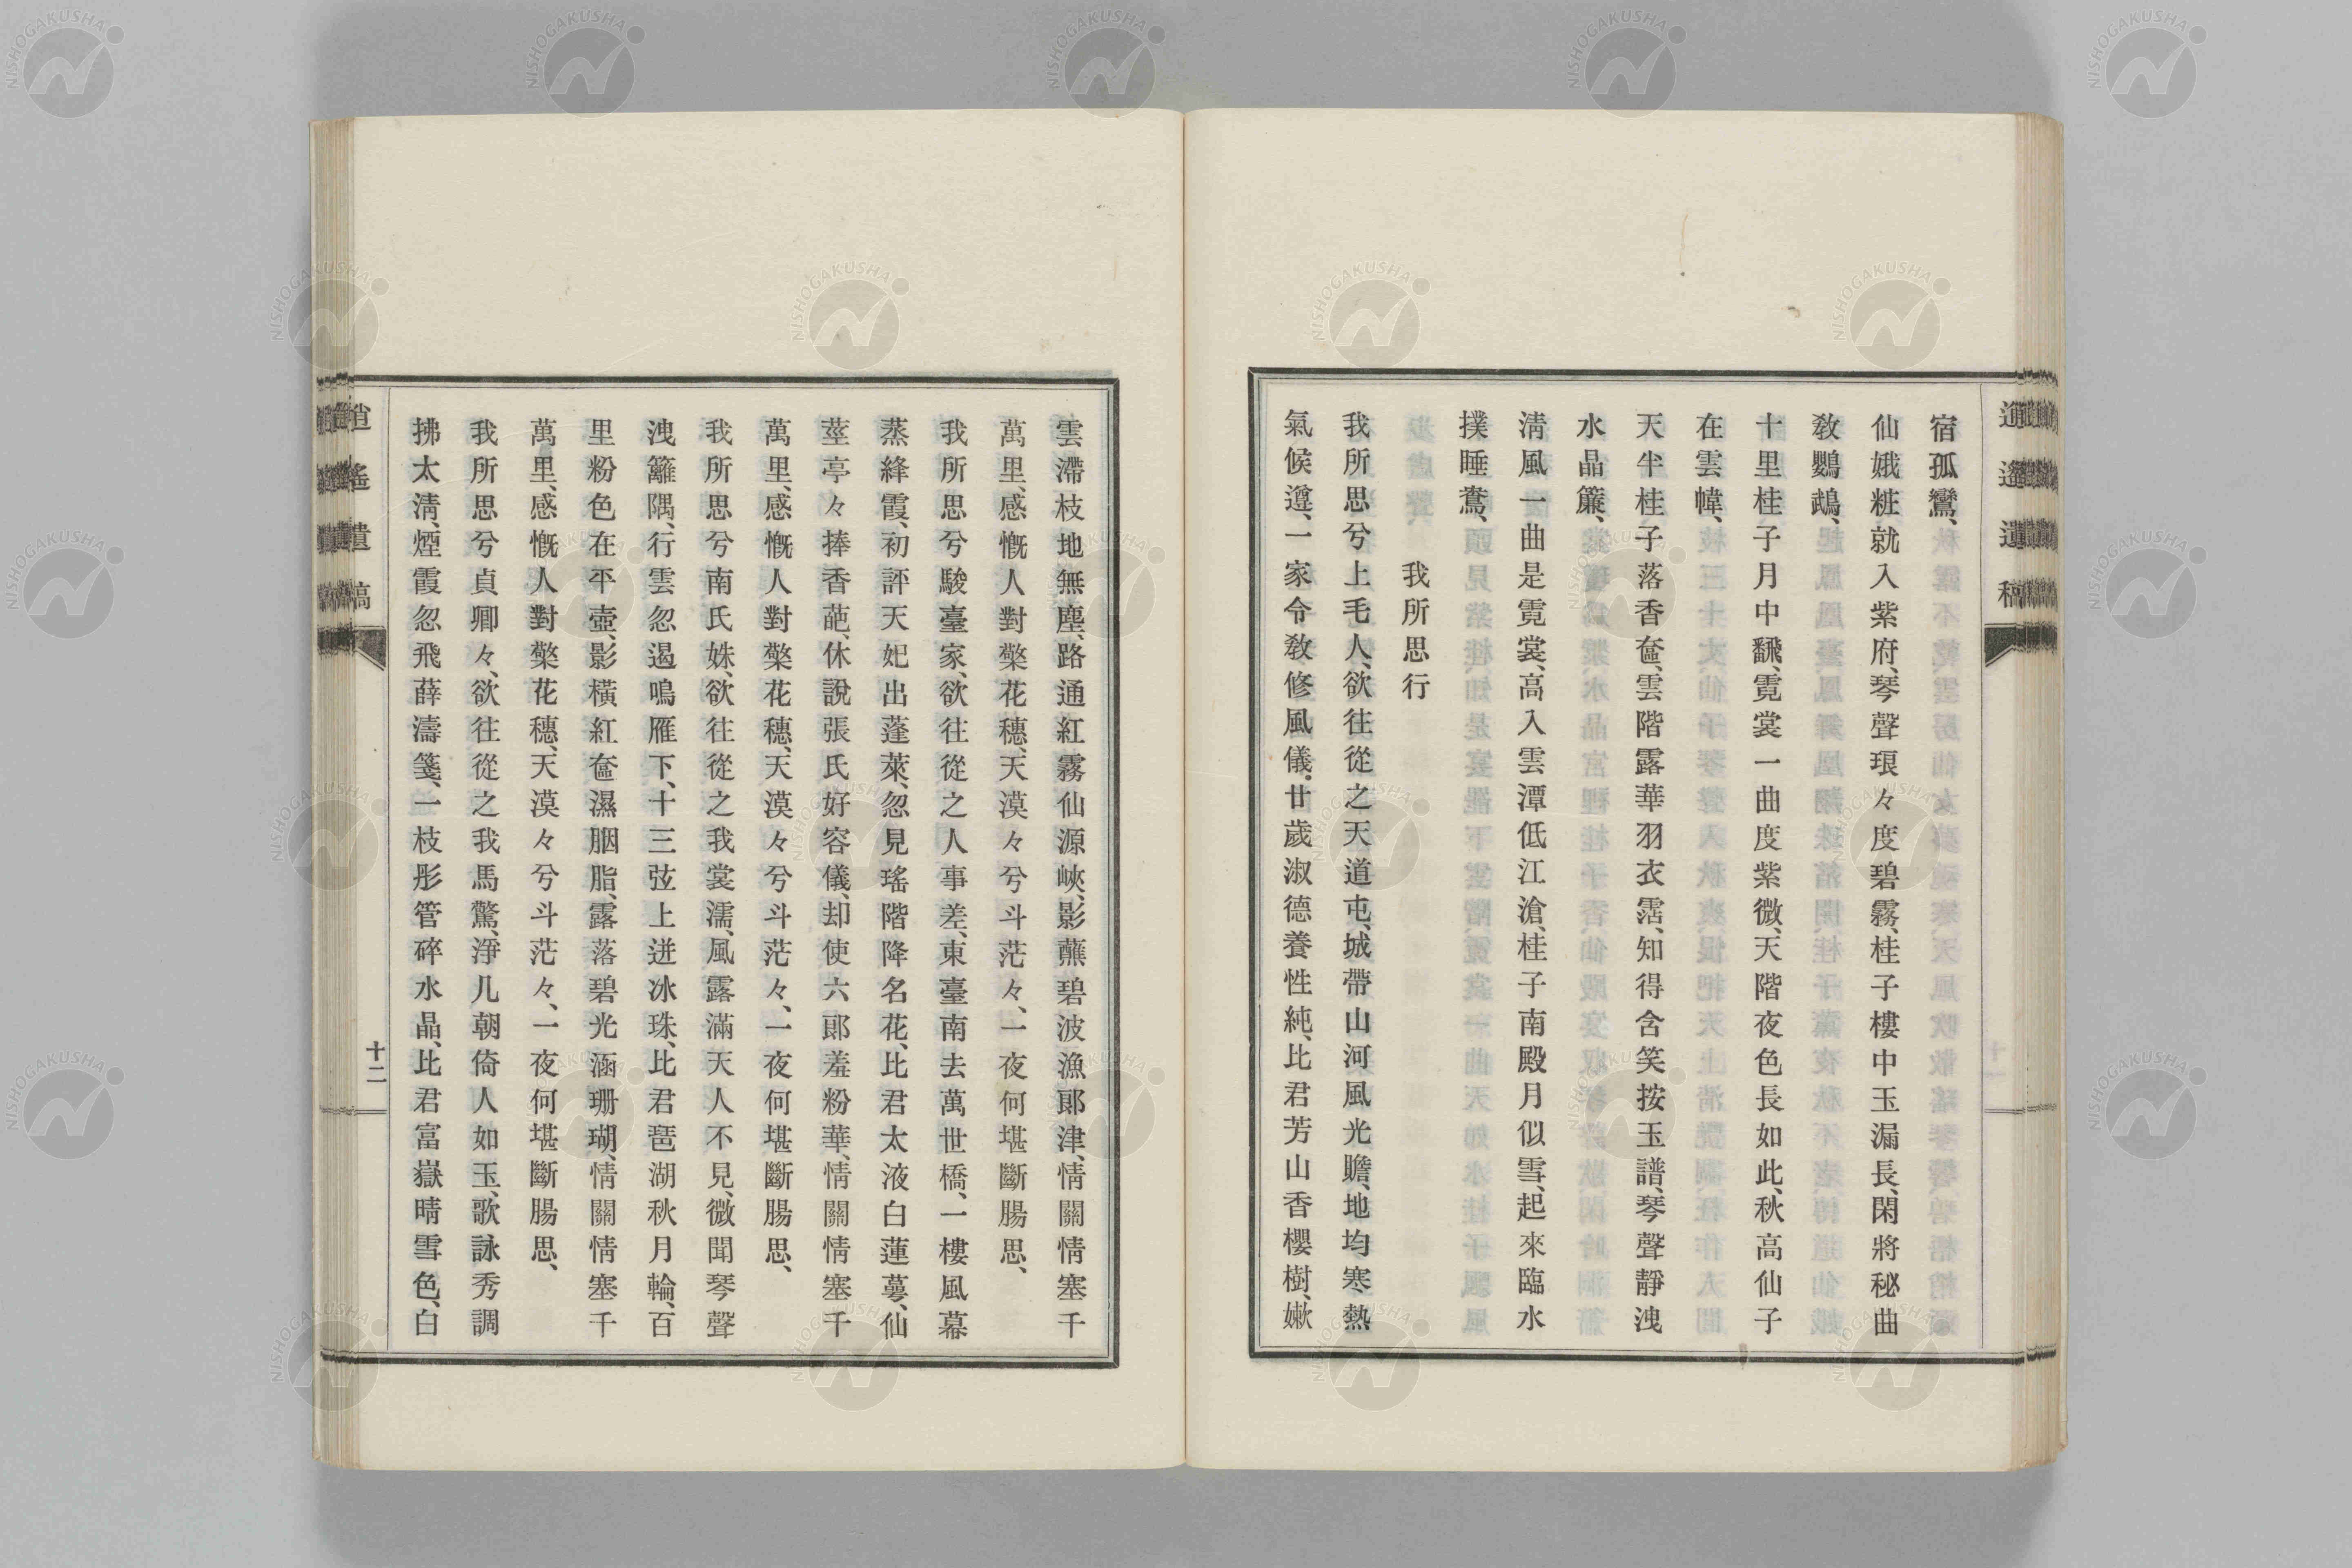 逍遙遺稿
宿孤鸞、
仙娥粧就入紫府、琴聲琅々度碧霧、桂子樓中玉漏長、閑將秘曲
敎鸚鵡、
十里桂子月中飜、霓裳一曲度紫微、天階夜色長如此、秋高仙子
在雲幃、
天半桂子落香奩、雲階露華羽衣霑、知得含笑按玉譜、琴聲靜洩
水晶簾、
淸風一曲是霓裳、高入雲潭低江滄、桂子南殿月似雪、起來臨水
撲睡鴦、
我所思行
我所思兮上毛人、欲往從之天道屯、城帶山河風光贍、地均寒熱
氣候遵、一家令敎修風儀、廿歲淑德養性純、比君芳山香櫻樹、嫩
雲滯枝地無塵、路通紅霧仙源峽、影蘸碧波漁郞津、情關情塞千
萬里、感慨人對檠花穗、天漠々兮斗茫々、一夜何堪斷腸思、
我所思兮駿臺家、欲往從之人事差、東臺南去萬世橋、一樓風幕
蒸絳霞、初訝天妃出蓬萊、忽見瑤階降名花、比君太液白蓮蕚、仙
莖亭々捧香葩、休說張氏好容儀、却使六郞羞粉華、情關情塞千
萬里、感慨人對檠花穗、天漠々兮斗茫々、一夜何堪斷腸思、
我所思兮南氏姝、欲往從之我裳濡、風露滿天人不見、微聞琴聲
洩籬隅、行雲忽遏鳴雁下、十三弦上迸冰珠、比君琶湖秋月輪、百
里粉色在平壺、影橫紅奩濕胭脂、露落碧光涵珊瑚、情關情塞千
萬里、感慨人對檠花穗、天漠々兮斗茫々、一夜何堪斷腸思、
我所思兮貞卿々、欲往從之我馬驚、淨几朝倚人如玉、歌詠秀調
拂太淸、煙霞忽飛薛濤箋、一枝彤管碎水晶、比君富嶽晴雪色、白
逍遙遺稿
十二